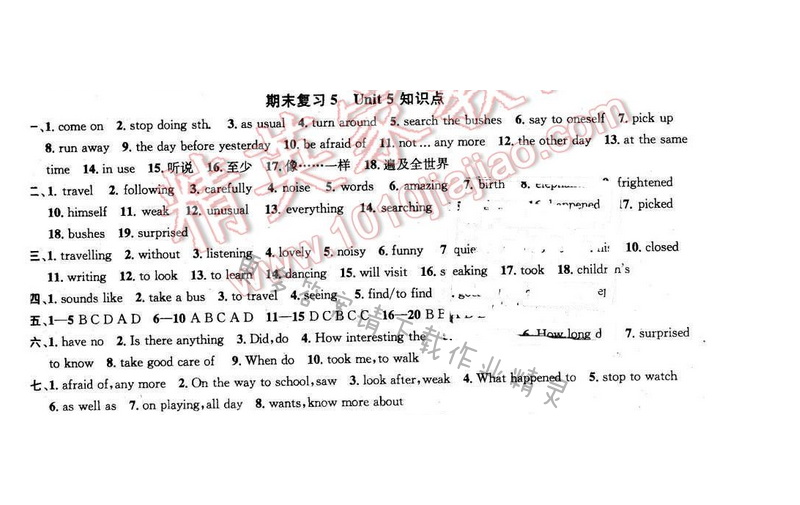 期末复习5 Unit 5 知识点
一、1. come on 2. stop doing sth. 3. as usual 4. turn around 5. search the bushes 6. say to oneself 7. pick up
8. run away 9. the day before yesterday 10. be afraid of 11. not… any more 12. the other day 13. at the same
time 14. in use 15. 听说 16. 至少 17. 像……一样 18. 遍及全世界
二、1. travel 2. following 3. carefully 4. noise 5. words 6. amazing 7. birth 8. 9. frightened
10. himself 11. weak 12. unusual 13. everything 14. searching happened 17. picked
18. bushes 19. surprised
三、1. travelling 2. without 3. listening 4. lovely 5. noisy 6. funny 7 quie 10. closed
11. writing 12. to look 13. to learn 14. dancing 15. will visit 16. s eaking 17. took 18. childr n's
四、1. sounds like 2. take a bus 3. to travel 4. seeing 5. find/to find
五、1—5 B C D A D 6—10 A B C A D 11—15 D C B C C 16—20 B
六、1. have no 2. Is there anything 3. Did, do 4. How interesting the 6. How long d 7. surprised
to know 8. take good care of 9. When do 10. took me, to walk
七、1. afraid of, any more 2. On the way to school, saw 3. look after, weak 4. What happened to 5. stop to watch
6. as well as 7. on playing, all day 8. wants, know more about
精英家教网
www.1010jiajiao.com
更多答案请下载作业精灵